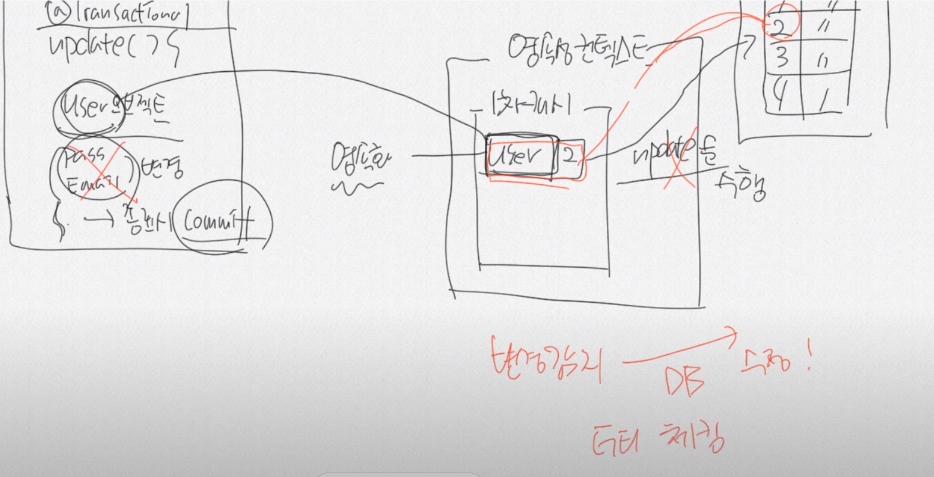 @Transactional
update() {
User 오브젝트
Pass
Email
변경
} → 종료시 Commit
영속화
영속성 컨텍스트
1차 캐시
User 2
update를
수행
2 "
3 "
4
변경감지 → DB 수정!
더티 체킹